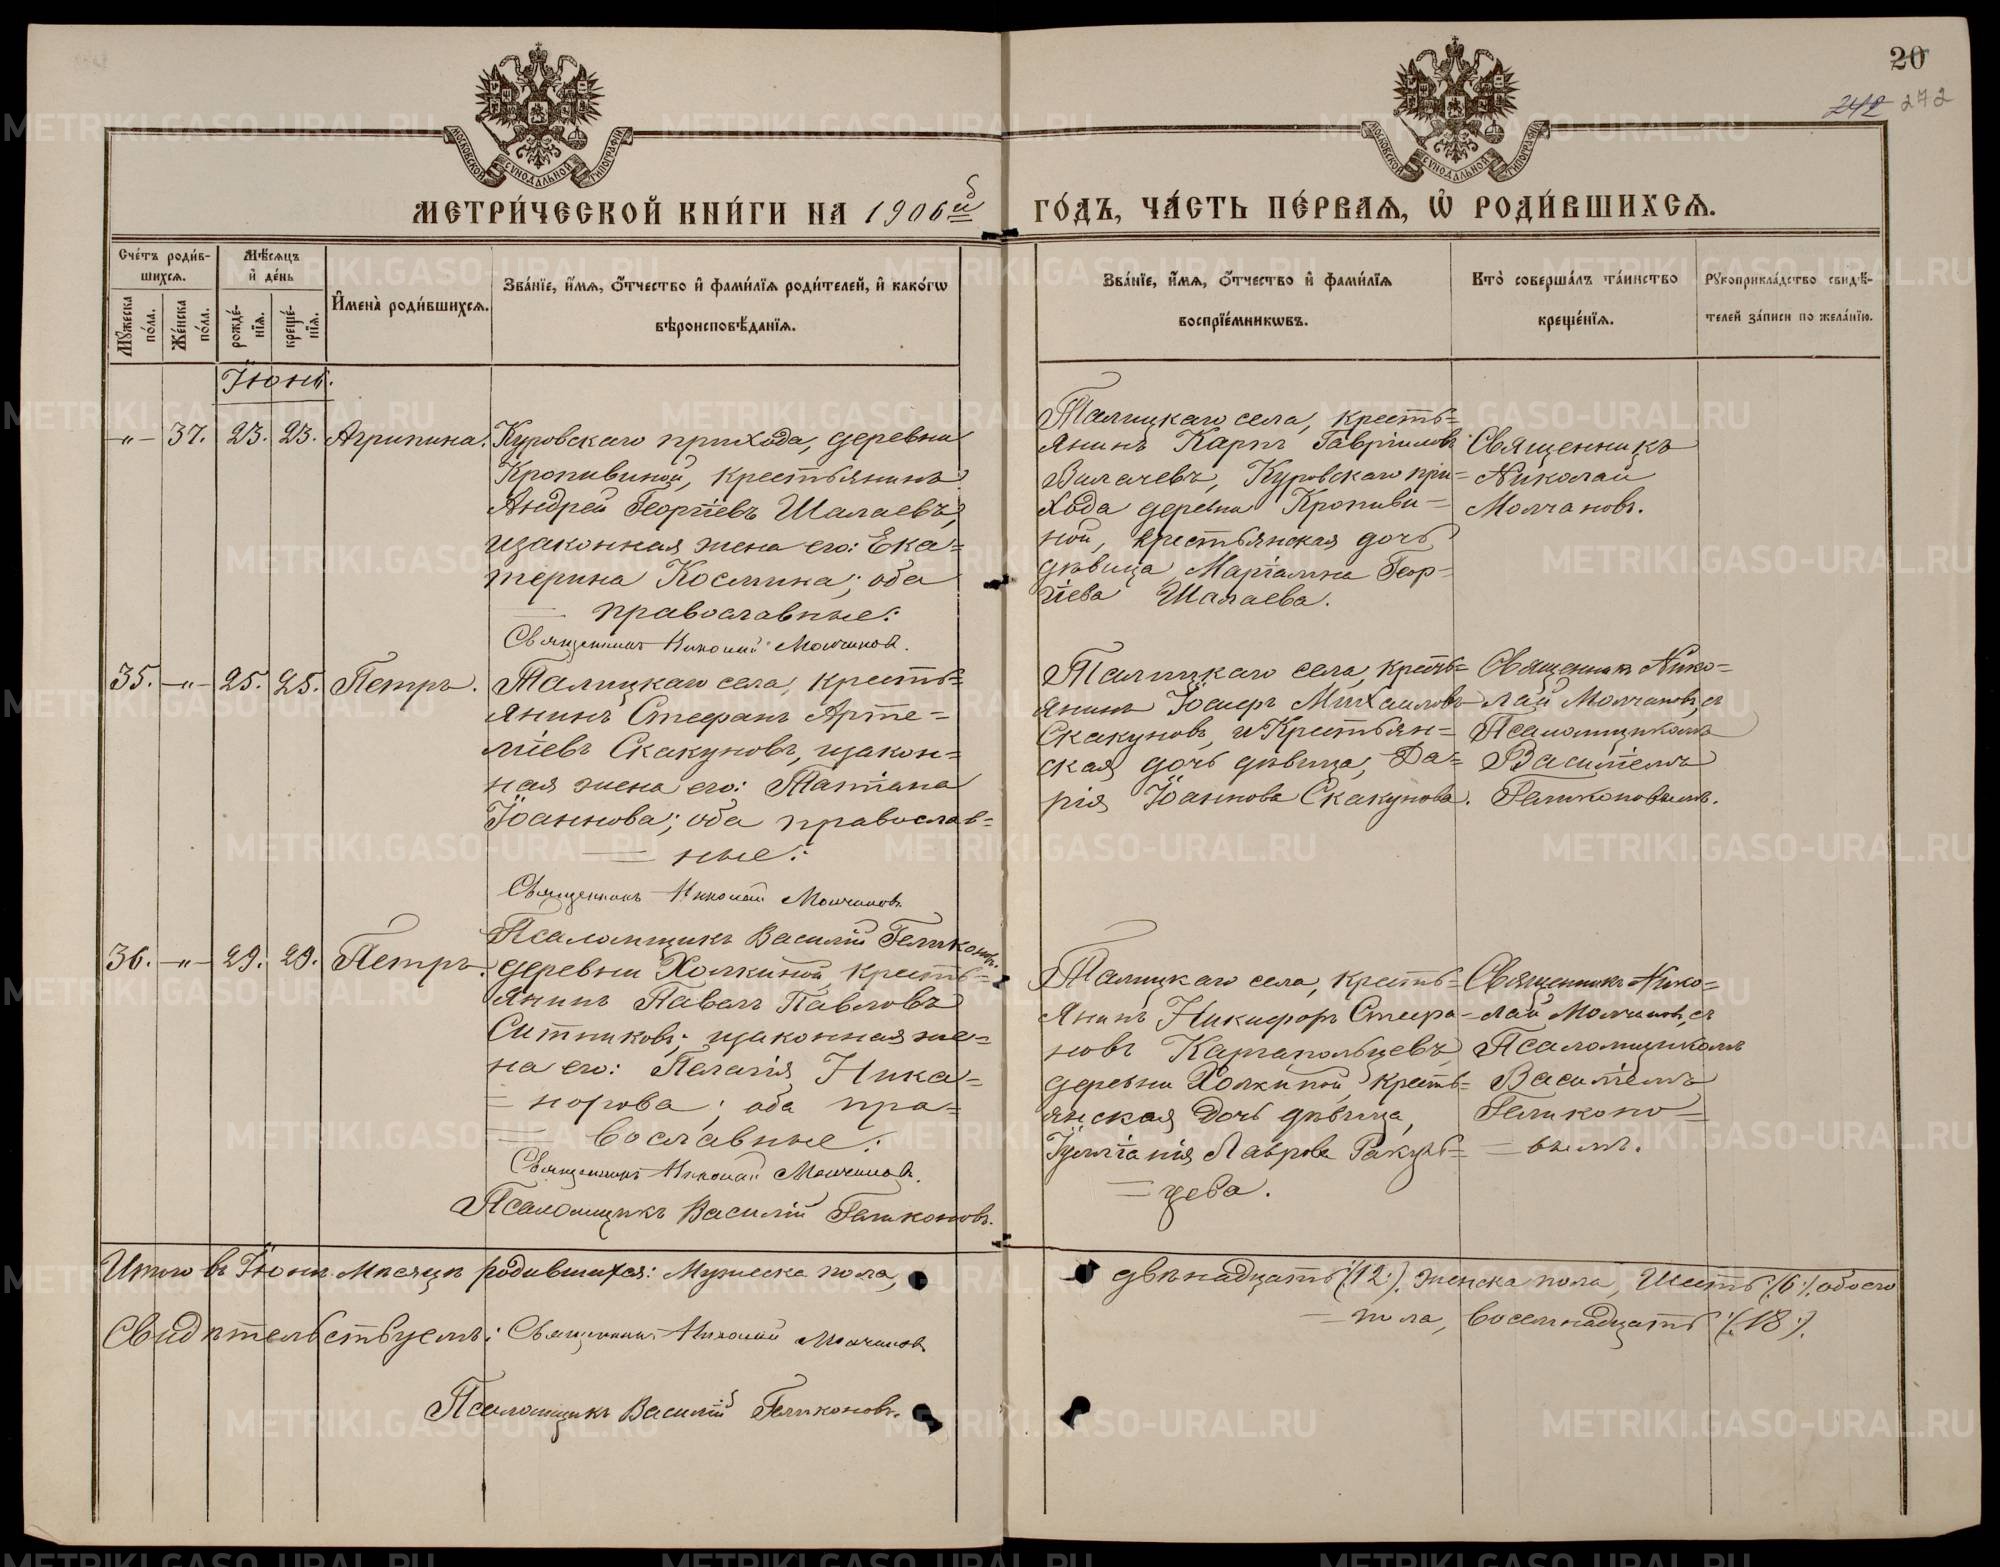 20
242 272
МОСКОВСКОЙ СУНОДАЛЬНОЙ ТИПОГРАФІИ
МОСКОВСКОЙ СУНОДАЛЬНОЙ ТИПОГРАФІИ
МЕТРИ́ЧЕСКОЙ КНИ́ГИ НА 1906й
ГО́ДЪ, ЧА́СТЬ ПЕ́РВАѦ, Ѡ РОДИ́ВШИХСѦ.
Сче́тъ роди́в-
шихсѧ.
Мꙋ́жеска по́ла.
Же́нска по́ла.
Мѣ́сѧцъ
и҆ де́нь
рожде́-
нїѧ.
креще́-
нїѧ.
И҆мена̀ роди́вшихсѧ.
Зва́нїе, и҆́мѧ, ѻ҆́тчество и҆ фами́лїѧ роди́телей, и҆ како́гѡ
вѣроисповѣ́данїѧ.
Зва́нїе, и҆́мѧ, ѻ҆́тчество и҆ фами́лїѧ
воспрїе́мникѡвъ.
Кто̀ соверша́лъ та́инство
креще́нїѧ.
Рꙋкоприкла́дство свидѣ́-
телей за́писи по жела́нїю.
Іюнь.
-"- 37. 23. 23. Агрипина.
Куровскаго прихода, деревни
Кропивиной, крестьянинъ
Андрей Георгіевъ Шалаевъ,
изаконная жена его: Ека=
терина Космина; оба
православные:
Священникъ Николай Молчановъ.
Талицкаго села, кресть=
янинъ Карпъ Гавріиловъ
Вилачевъ, Куровскаго при-
хода деревни Кропиви-
ной, крестьянская дочь
дѣвица Маріамна Геор-
гіева Шалаева.
Священникъ
Николай
Молчановъ.
35. -"- 25. 25. Петръ.
Талицкаго села, кресть=
янинъ Стефанъ Арте=
міевъ Скакуновъ, изакон=
ная жена его: Татіана
Іоаннова; оба православ=
ные:
Священникъ Николай Молчановъ
Псаломщикъ Василій Геликоновъ.
Талицкаго села, кресть=
янинъ Іосифъ Михаиловъ
Скакуновъ, и Крестьян=
ская дочь дѣвица, Да=
рія Іоаннова Скакунова.
Священникъ Нико=
лай Молчановъ, съ
Псаломщикомъ
Василіемъ
Геликоновымъ.
36. -"- 29. 29. Петръ.
деревни Холкиной, кресть=
янинъ Павелъ Павловъ
Ситниковъ; изаконная же=
на его: Пелагія Ника=
норова; оба пра=
вославные:
Священникъ Николай Молчановъ.
Псаломщикъ Василій Геликоновъ.
Талицкаго села, кресть=
янинъ Никифоръ Стефа=
новъ Каргапольцевъ,
деревни Холкиной, кресть=
янская дочь дѣвица,
Іуліанія Лаврова Ракуль=
цева.
Священникъ Нико=
лай Молчановъ, съ
Псаломщикомъ
Василіемъ
Геликоно=
вымъ.
Итого въ Іюнѣ мѣсяцѣ родившихся: Мужеска пола,
двѣнадцать (12.). женска пола, Шесть (6.). обоего
пола, восемнадцать (18.).
Свидѣтельствуемъ: Священникъ Николай Молчановъ
Псаломщикъ Василій Геликоновъ.
METRIKI.GASO-URAL.RU